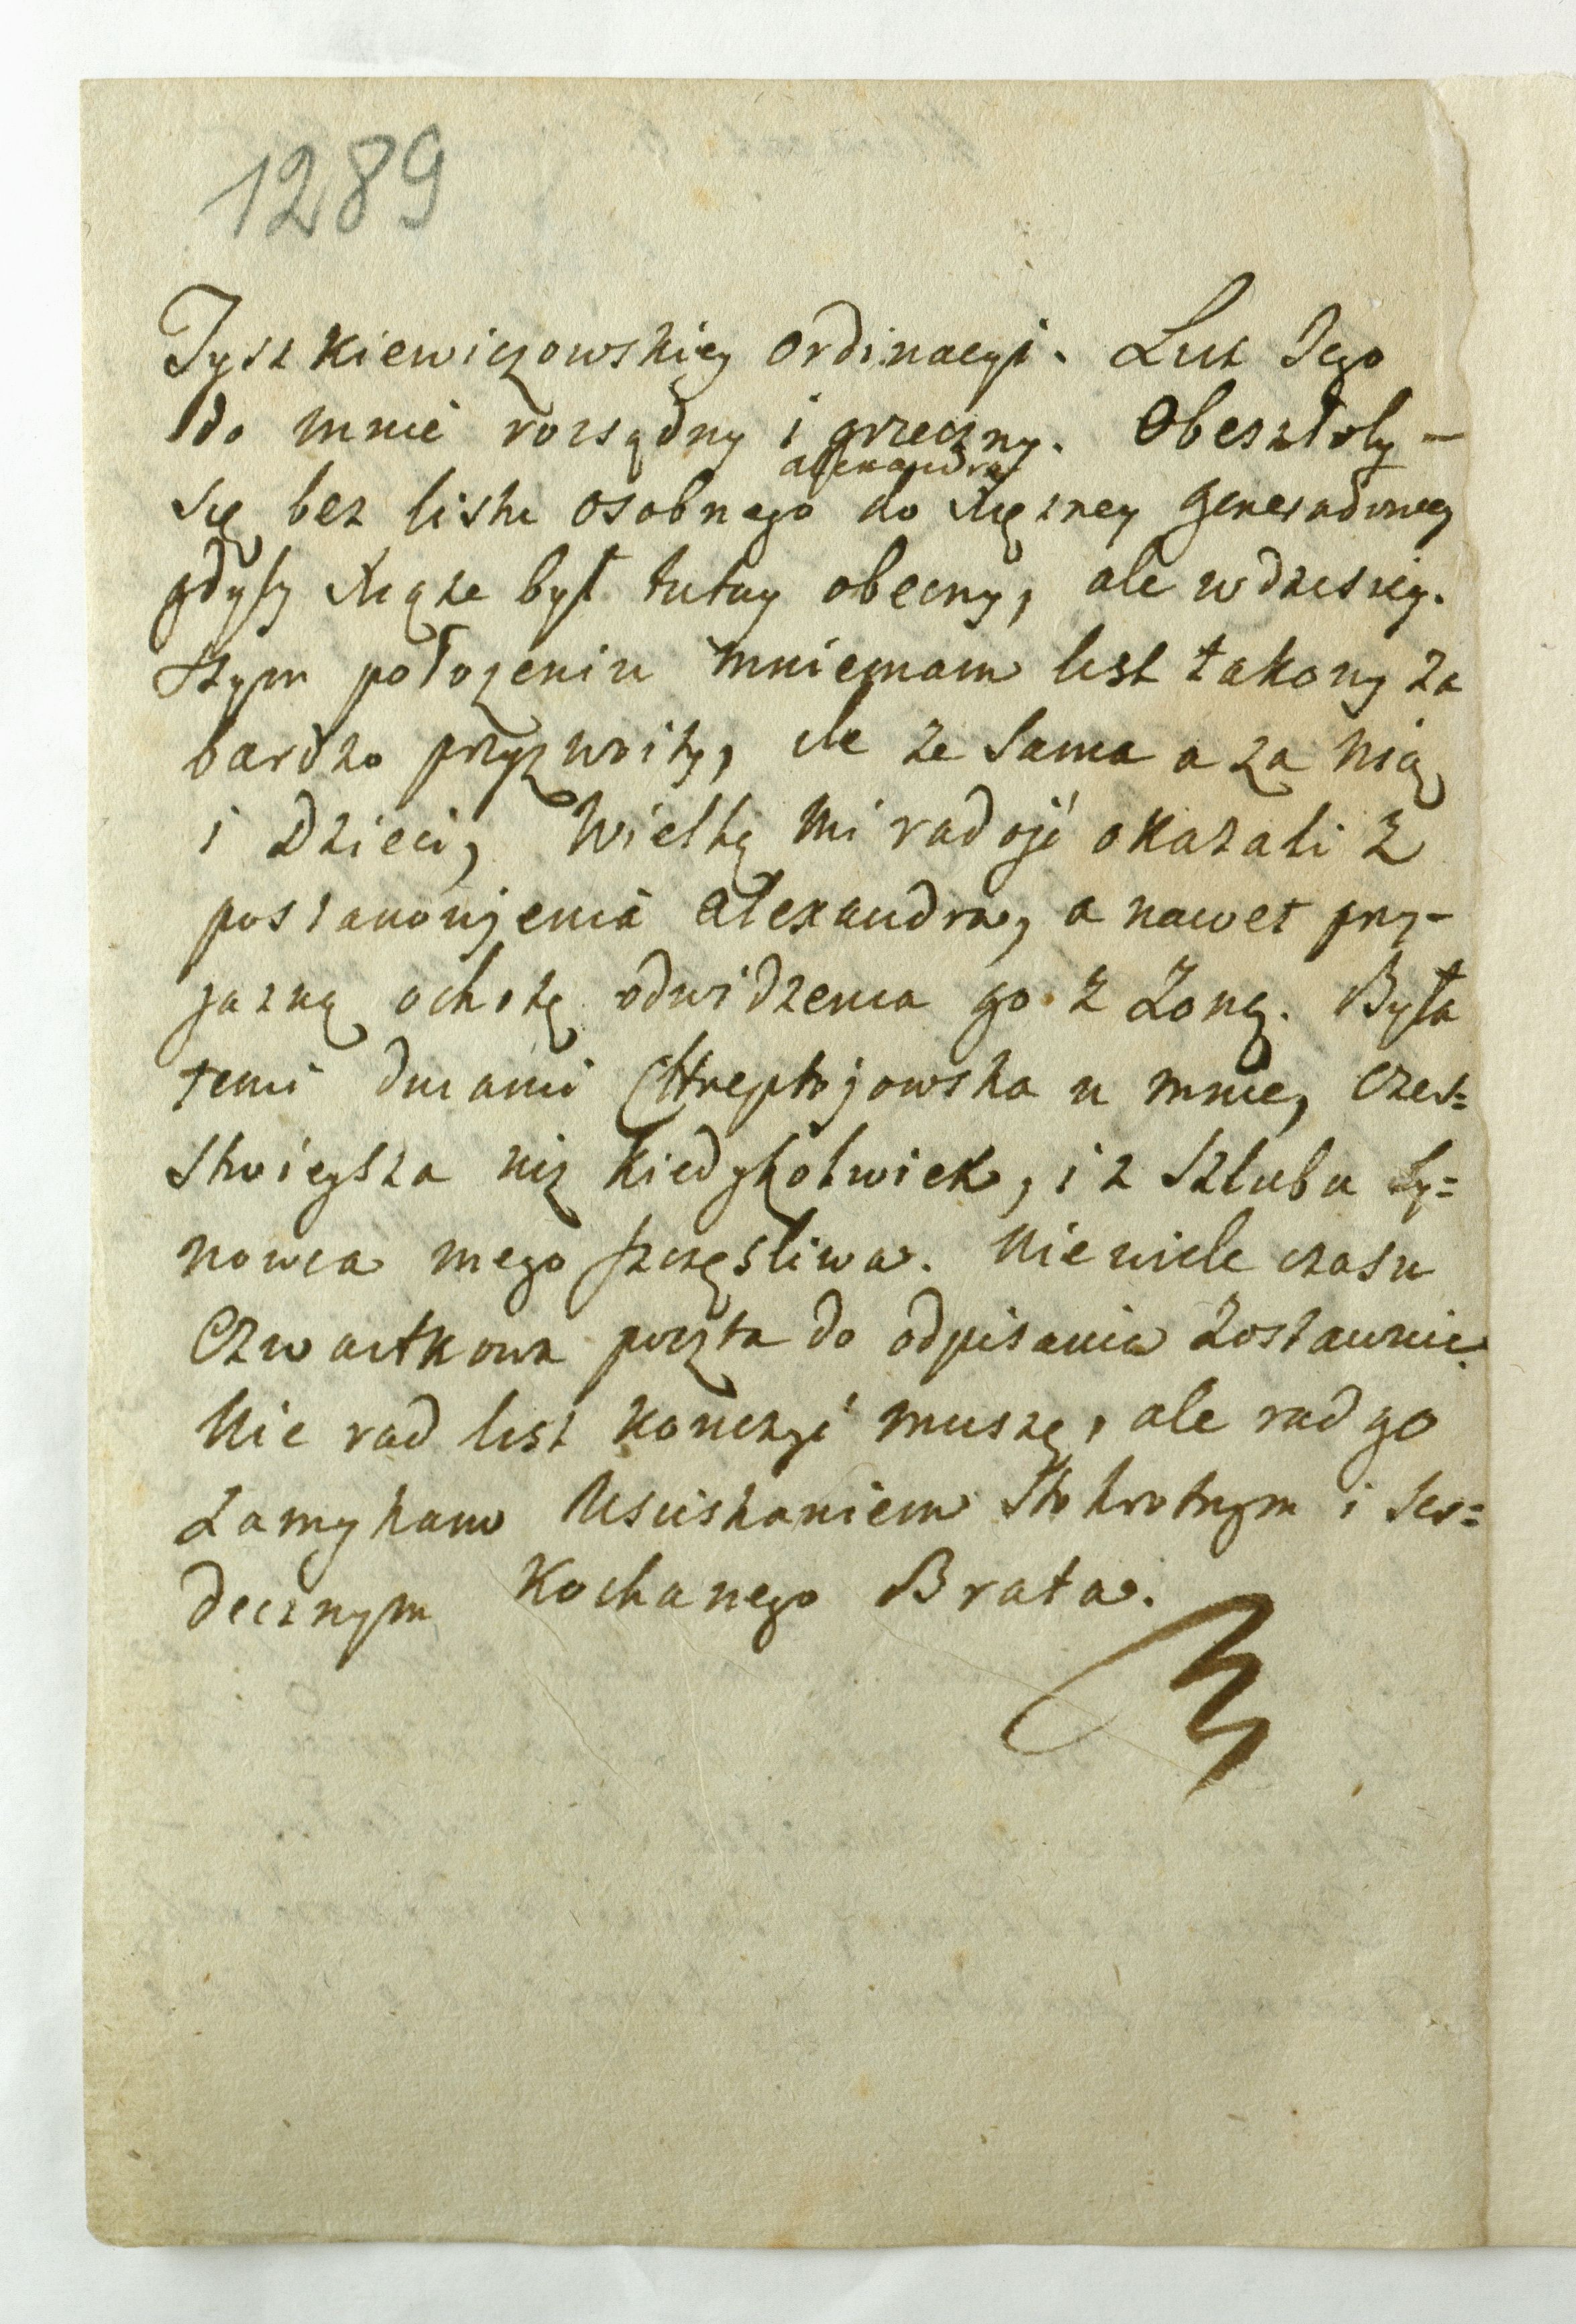 1289
Tyszkiewiczowskiey Ordinacyi. List Jego
do mnie rozsądny i grzeczny. Obeszłoby-
alexandra
się bez listu osobnego do Xięzney Generałowey
gdyby Xiąze był tutay obecny, ale w dzisiey-
szym położeniu mniemam list takowy za
bardzo przyzwoity, ile ze sama a za nią
i Dzieci, Wielką mi radość okazali z
postanowjenia Alexandra, a nawet przy-
jazną ochotę odwidzenia go z Zoną. Była
temi dniami Chreptojowska u mnie, czer-
stwieysza niż kiedyżkolwiek, i z Szlubu Sy=
nowca mego szczęśliwa. Nie wiele czasu
Czwartkowa poczta do odpisania zostawuie.
Nie rad list kończyć muszę, ale rad go
Zamykam Usciskaniem Stokrotnym i Ser=
decznym Kochanego Brata.